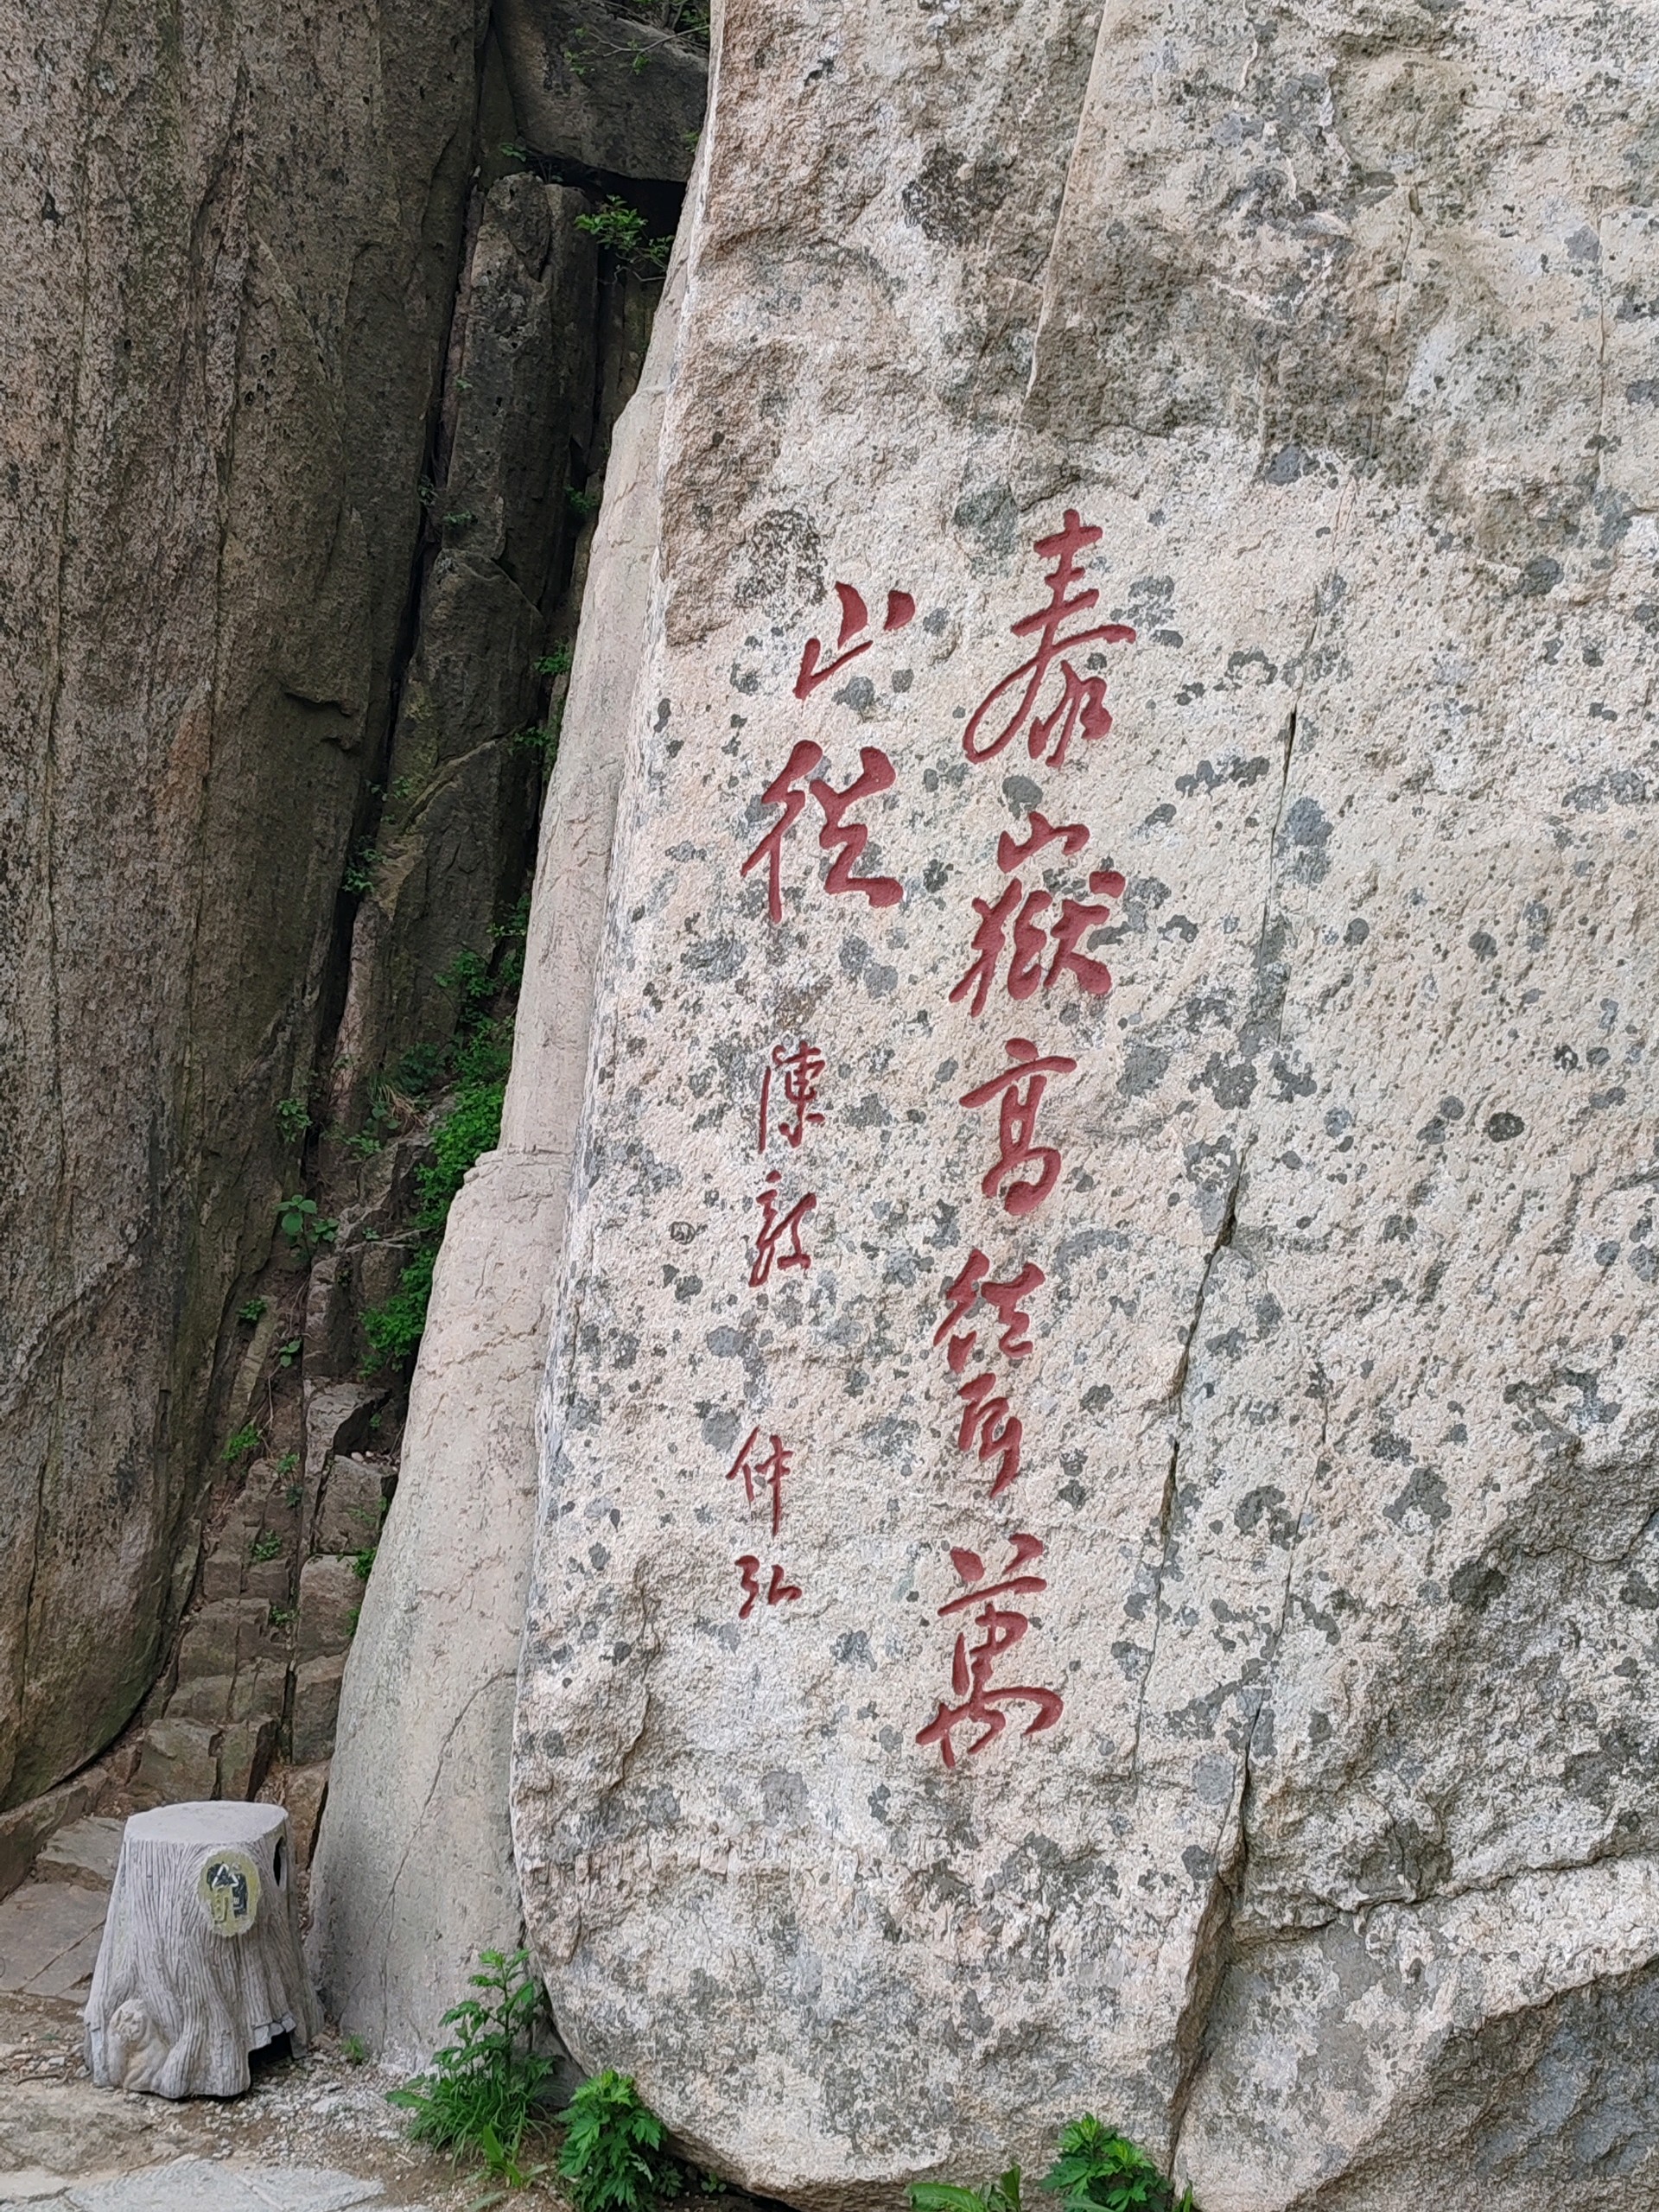 泰嶽高聳萬
山從
陳毅 仲弘